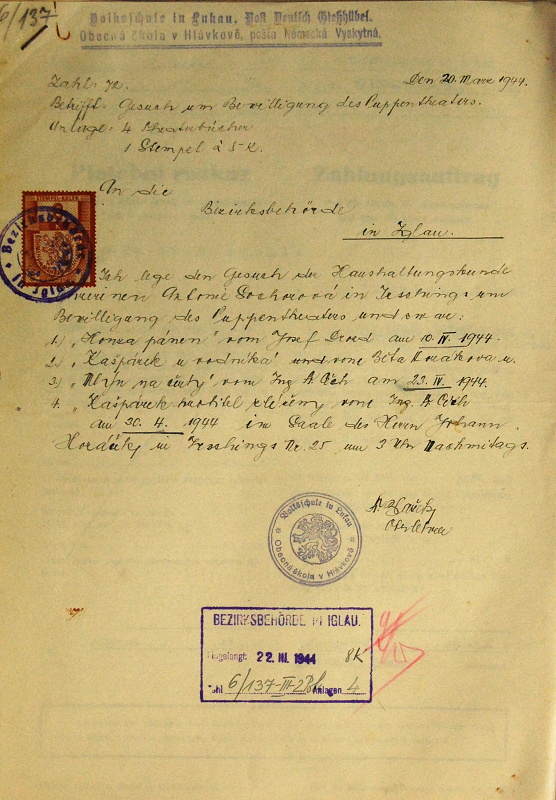 6/137
Volksschule in Lukau, Post Deutsch Gießhübel.
Obecná škola v Hlávkově, pošta Německá Vyskytná.
Zahl: 72. Den 20. März 1944.
Betrifft: Gesuch um Bewilligung des Puppentheaters.
Anlage: 4 Theaterbücher
1 Stempel à 5 K.
An die
Bezirksbehörde
in Iglau.
Ich lege den Gesuch der Haushaltungskunde
Antonie in um
Bewilligung des Puppentheaters und zwar:
1.) „Honza pánem" vom Josef am 10. IV. 1944.
2.) „Kašpárek u vodníka" und von Běta u.
3.) „Mlýn na čerty" vom Ing. A. Čech am 23. IV. 1944.
4. „Kašpárek vom Ing. A. Čech
am 30. 4. 1944 im Saale des Herrn Johann
in Nr. 25 um 3 Uhr Nachmittags.
Volksschule in Lukau
Obecná škola v Hlávkově
BEZIRKSBEHÖRDE IN IGLAU.
Eingelangt: 22. III. 1944 8K
Zahl 6/137-III-2 Anlagen 4